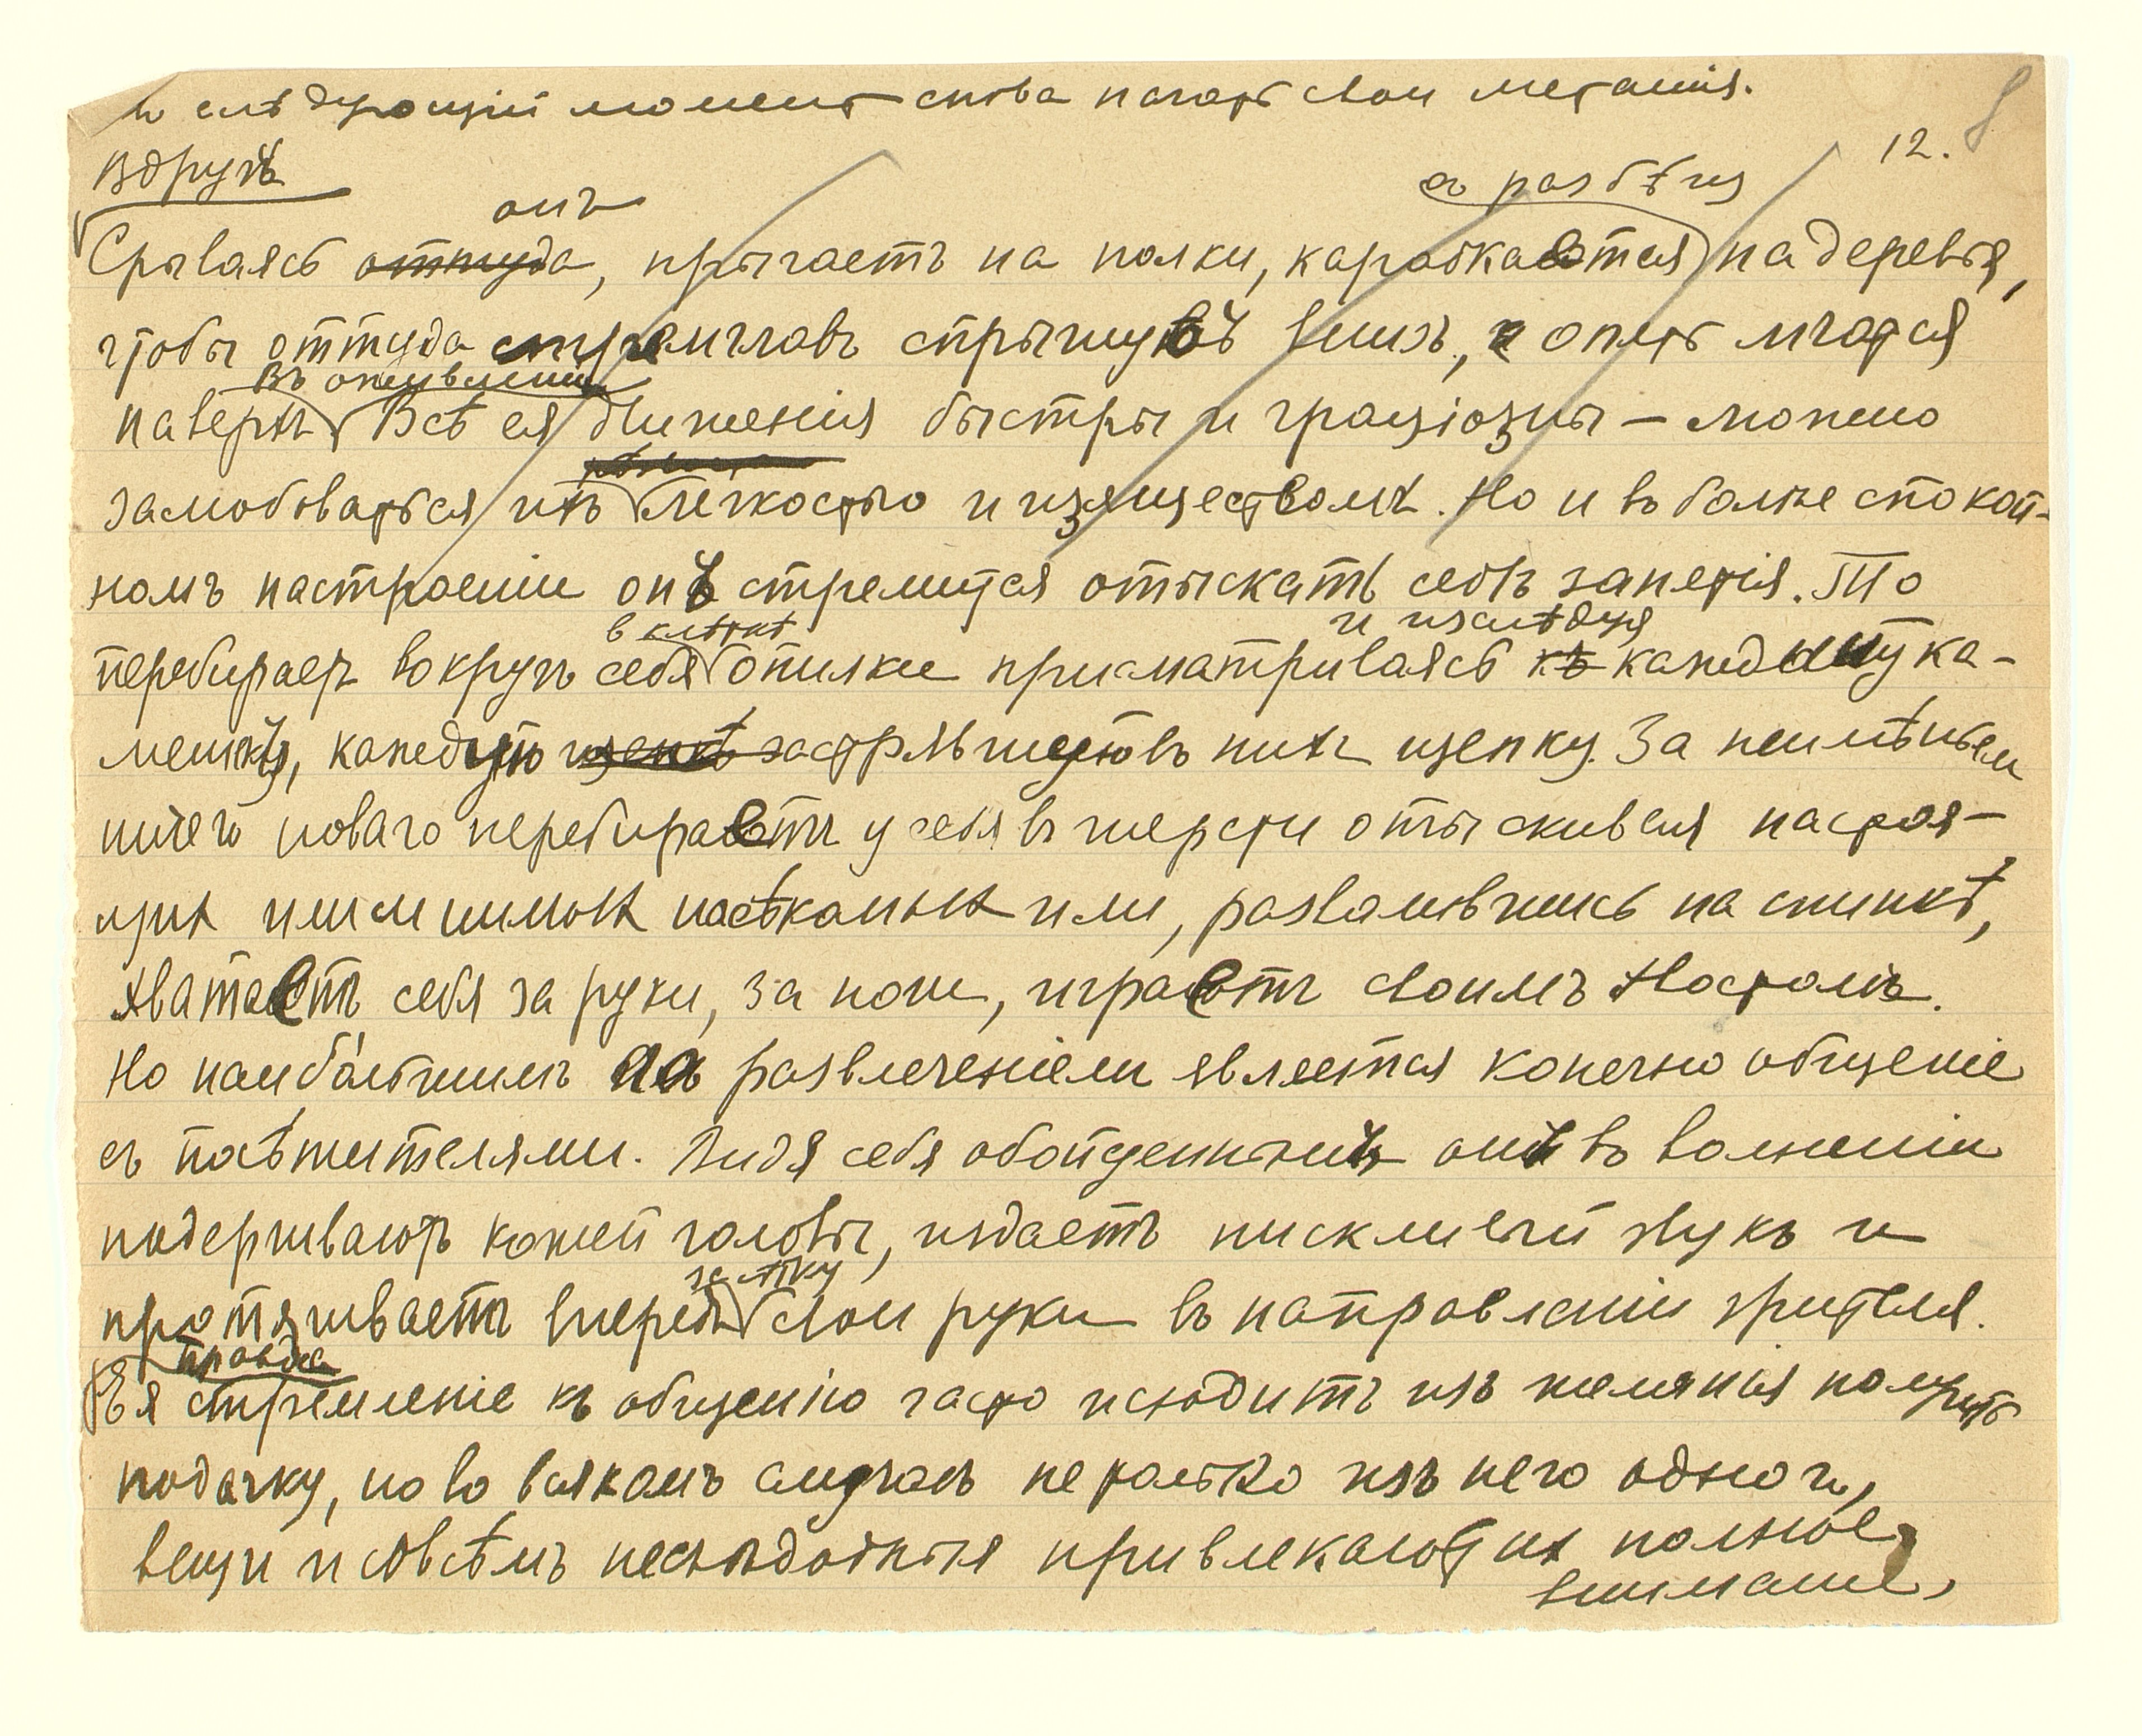 въ слѣдующій моментъ снова начать свои метанія.
12. 8
Вдругъ
онъ
съ разбѣгу
Срываясь оттуда, прыгаетъ на полки, карабкается на деревья,
чтобы оттуда стремглавъ спрыгнуть внизъ, и опять мчатся
въ оживленіи
наверхъ. Всѣ ея движенія быстры и граціозны – можно
залюбоваться ихъ легкостью и изяществомъ. Но и въ более спокой-
номъ настроеніи онъ стремится отыскать себѣ занятія. То
в клѣткѣ
и изслѣдуя
перебирает вокругъ себя опилки присматриваясь къ каждому ка-
мешку, каждую щепкѣ застрявшую въ нихъ щепку. За неимѣньем
ничего новаго перебираетъ у себя въ шерсти отыскивая настоя-
щих или мнимых насѣкомых или, развалившись на спинкѣ,
хватаетъ себя за руки, за ноги, играетъ своимъ хвостомъ.
Но наибо́льшимъ развлеченіем является конечно общеніе
съ посѣтителями. Видя себя обойденнымъ онъ въ волненіи
подергиваютъ кожей головы, издаетъ пискливый звукъ и
за сѣтку
протягиваетъ впередъ свои руки въ направленіи зрителя.
Правда
Ея стремленіе къ общенію часто исходитъ изъ желанія получить
подачку, но во всякомъ случаѣ не только изъ него одного,
вещи и совсѣмъ несъѣдобныя привлекают их полное
вниманіе,